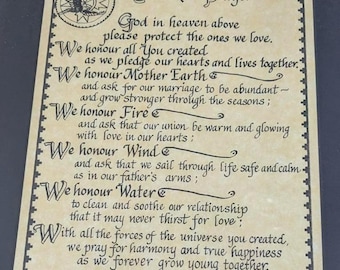 God in heaven above
please protect the ones we love.
We honour all You created
as we pledge our hearts and lives together.
We honour Mother Earth
and ask for our marriage to be abundant~
and grow stronger through the seasons;
We honour Fire
and ask that our union be warm and glowing
with love in our hearts;
We honour Wind
and ask that we sail through life safe and calm
as in our father's arms;
We honour Water
to clean and soothe our relationship
that it may never thirst for love;
With all the forces of the universe you created,
we pray for harmony and true happiness
as we forever grow young together.